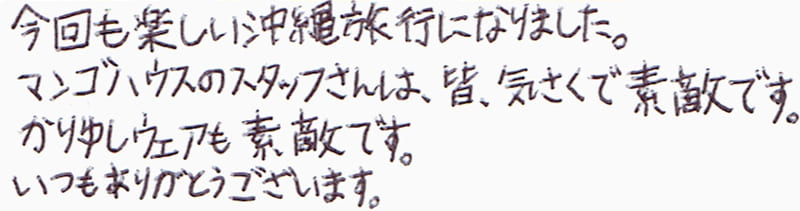 今回も楽しい沖縄旅行になりました。
マンゴハウスのスタッフさんは、皆、気さくで素敵です。
かりゆしウェアも素敵です。
いつもありがとうございます。